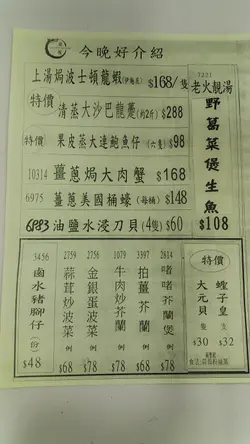 今晚好介紹
上湯焗波士頓龍蝦(伊麵底) $168/隻
特價 清蒸大沙巴龍躉(約2斤) $288
特價 果皮蒸大連鮑魚仔(六隻) $98
10314 薑蔥焗大肉蟹 $168
6975 薑蔥美國桶蠔(每桶) $148
6983 油鹽水浸刀貝(4隻) $60
3221
老火靚湯
野葛菜煲生魚
$108
3456 鹵水豬腳仔(份) $48
2759 蒜茸炒菠菜 例 $68
2756 金銀蛋菠菜 例 $78
1079 牛肉炒芥蘭 例 $78
3397 拍薑芥蘭 例 $68
2814 啫啫芥蘭煲 $78
特價
蟶子皇 隻 $32
大元貝 隻 $30